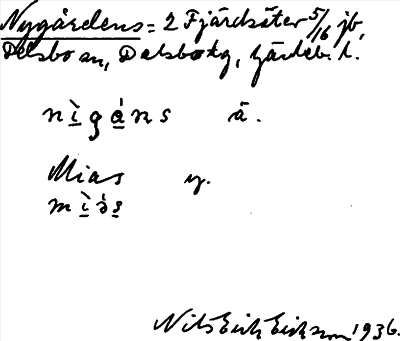 Nygårdens = 2 Fjärdsäter 5/16 jb,
Delsbo sn, Delsbo tg, Gävleb. l.
nìgáns ä.
Mias y.
mìàs
Nils Erik Eriksson 1936.